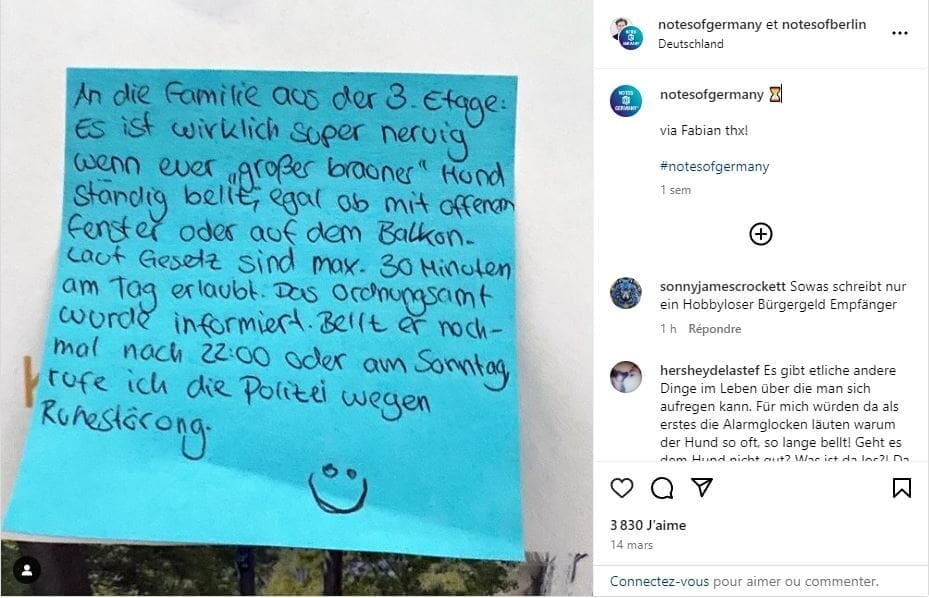 An die Familie aus der 3. Etage:
Es ist wirklich super nervig
wenn euer „großer brauner“ Hund
ständig bellt, egal ob mit offenem
Fenster oder auf dem Balkon.
Laut Gesetz sind max. 30 Minuten
am Tag erlaubt. Das Ordnungsamt
wurde informiert. Bellt er noch-
mal nach 22:00 oder am Sonntag,
rufe ich die Polizei wegen
Ruhestörung.
notesofgermany et notesofberlin
Deutschland
notesofgermany ⌛
via Fabian thx!
#notesofgermany
1 sem
sonnyjamescrockett Sowas schreibt nur
ein Hobbyloser Bürgergeld Empfänger
1 h Répondre
hersheydelastef Es gibt etliche andere
Dinge im Leben über die man sich
aufregen kann. Für mich würden da als
erstes die Alarmglocken läuten warum
der Hund so oft, so lange bellt! Geht es
dem Hund nicht gut? Was ist da los?! Da
3 830 J’aime
14 mars
Connectez-vous pour aimer ou commenter.